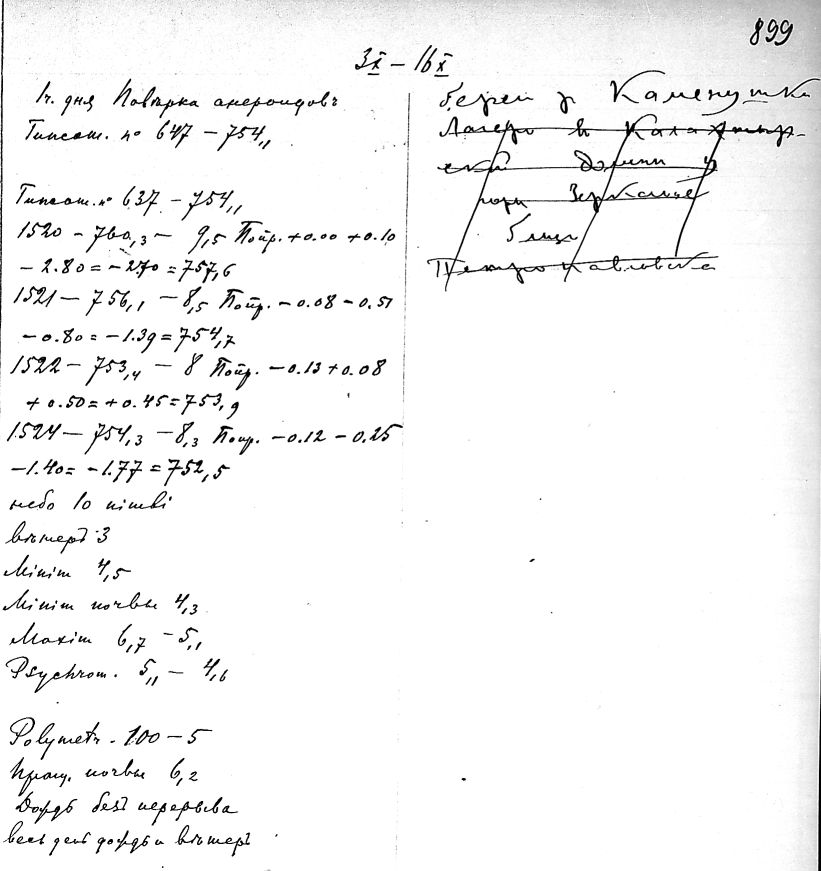 899
3 X – 16 X
1ч. дня Повѣрка анероидовъ
Гипсот. № 647 – 754,1
Гипсот. № 637 – 754,1
1520 – 760,3 – 9,5 Попр. +0.00 +0.10
– 2.80 = – 270 = 757,6
1521 – 756,1 – 8,5 Попр. – 0.08 – 0.51
– 0.80 = – 1.39 = 754,7
1522 – 753,4 – 8 Попр. – 0.13 + 0.08
+ 0.50 = + 0.45 = 753,9
1524 – 754,3 – 8,3 Попр. – 0.12 – 0.25
– 1.40 = – 1.77 = 752,5
небо 10 nimbi
вѣтеръ 3
Minim 4,5
Minim почвы 4,3
Maxim 6,7 – 5,1
Psychrom. 5,1 – 4,6
Polymetr. 100 – 5
Пращ. почвы 6,2
Дождь безъ перерыва
весь день дождь и вѣтеръ
берег р Каменушки
Лагерь в Калахтыр-
ской долины у
горы Зеркальце
близ
Петропавловска